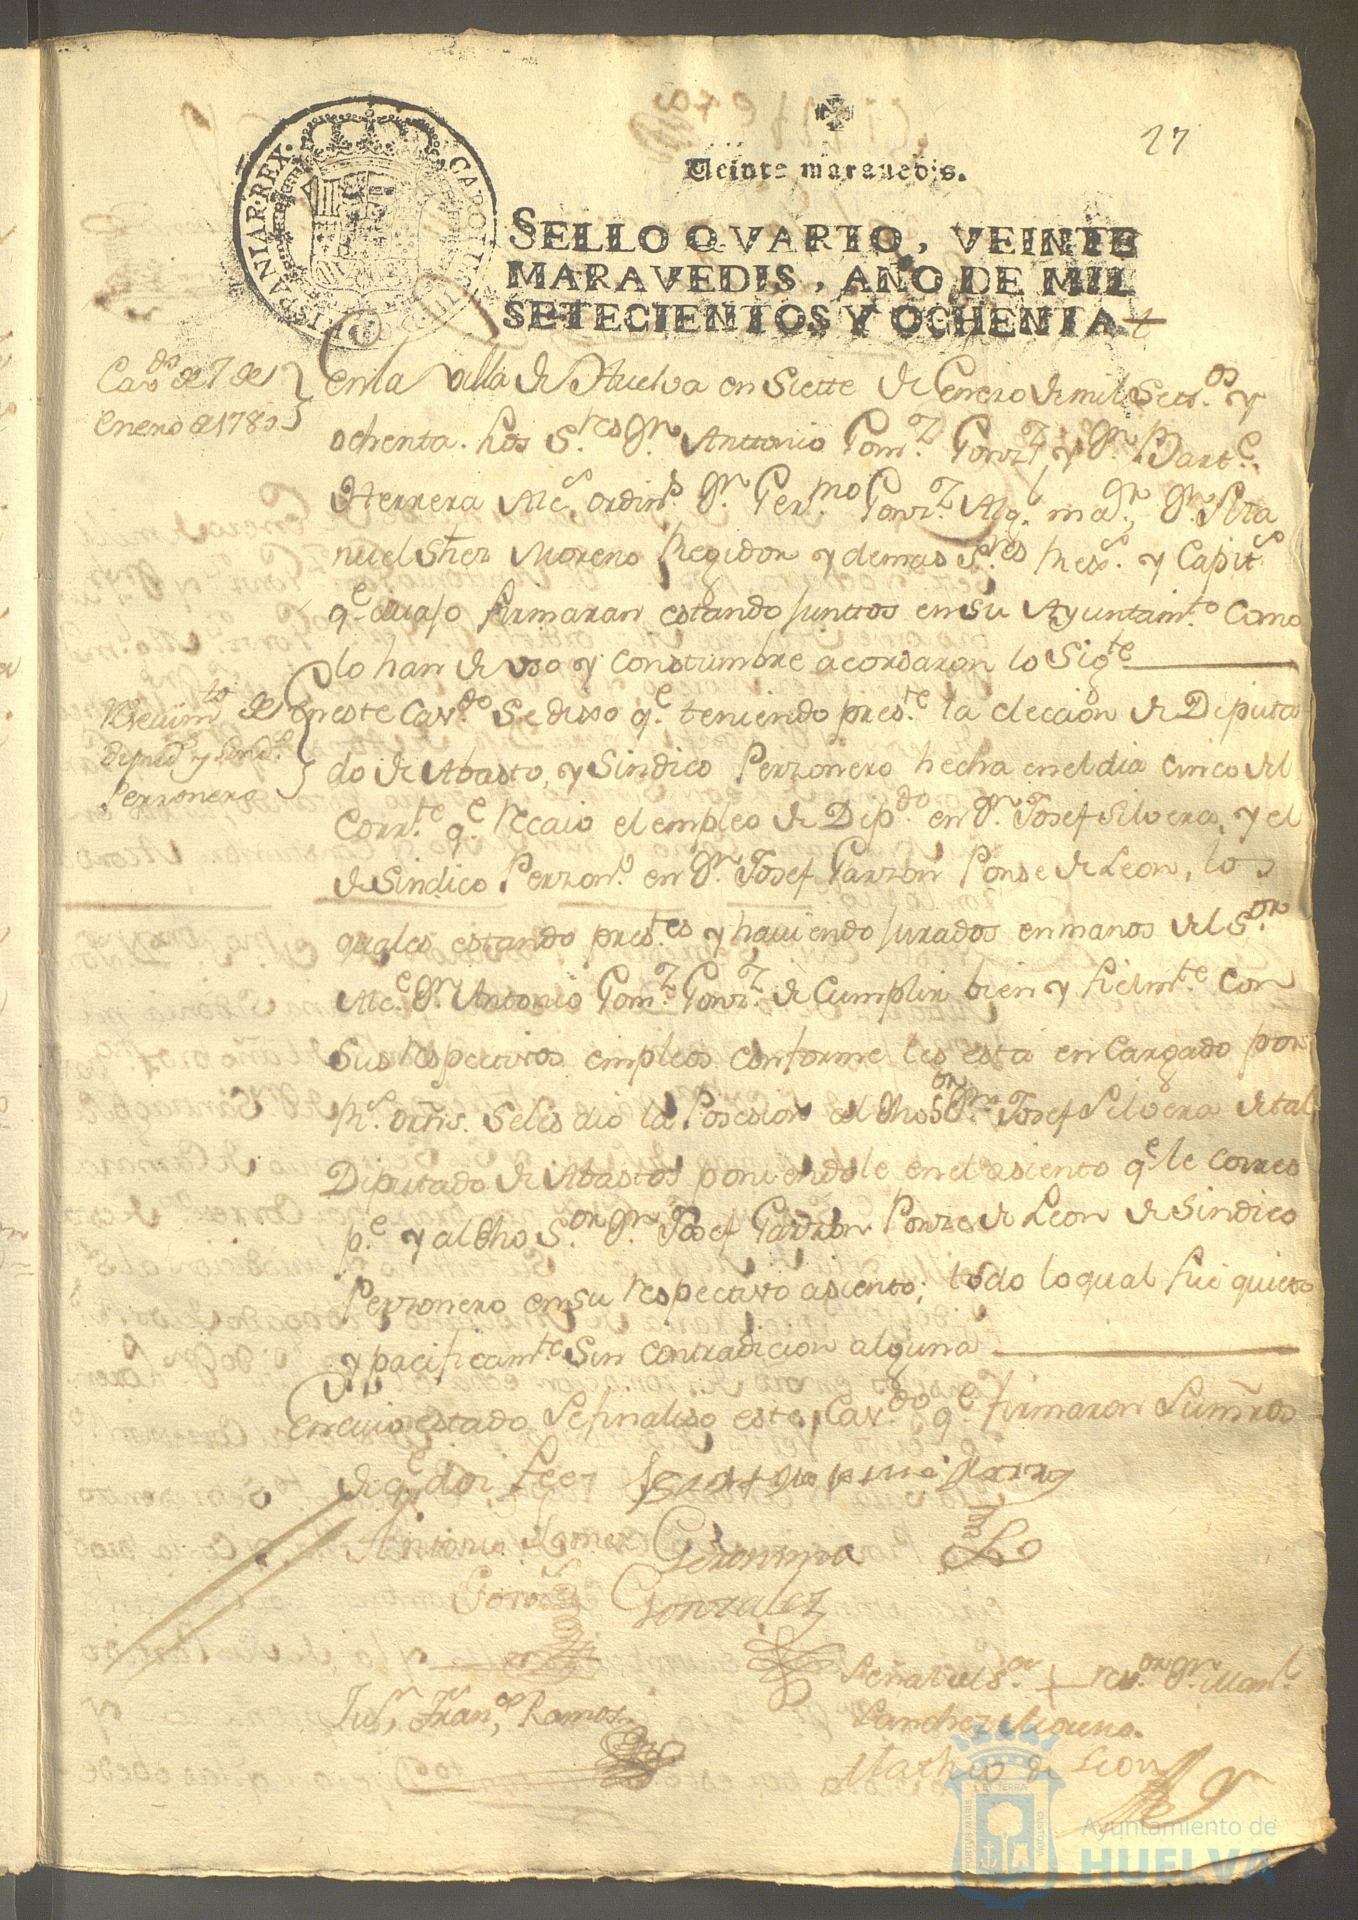 27
Veinte maravedis.
SELLO QVARTO, VEINTE
MARAVEDIS, AÑO DE MIL
SETECIENTOS Y OCHENTA
HISPANIAR·REX· CAROLUS
Cav.do de 7 de
Enero de 1780
En la Villa de Huelva en Siette de Enero de mil Setts.os y
ochenta. Los S.res Dn. Anttonio Gom.z Gonz.z, y Dn. Bart.e
Herrera Alc.s ordin.s Dn. Ger.mo Gonz.z Alg. ma.r, Dn. Ma
nuel Shez Moreno Regidor y demas S.res
q.e avajo firmaran estando junttos en su Ayuntam.to como
lo han de uso y Constumbre acordaron lo Sig.te
Recivim.to de
Diput.do y Sind.o
Perzonero
En este Cav.do Se dixo q.e teniendo pres.te la eleccion de Diputa
do de Abasto, y Sindico Perzonero hecha en el dia cinco del
Corr.te q.e recaio el empleo de Dip.do en Dn. Josef Silvera, y el
de Sindico Perzon.o en Dn. Josef Garzon Ponse de Leon, los
quales estando pres.tes y haviendo jurados en manos del S.or
Alc.e Dn. Antonio Gom.z Gonz.z de Cumplir bien y fielm.te con
sus respectivos empleos conforme les esta encargado por
R.s orns. Se les dio la Posesion al dho S.or Dn. Josef Silvera de tal
Diputado de Abastos poniendole en el asiento q.e le corres
p.e y al dho S.or Dn. Josef Garzon Ponze de Leon de Sindico
Perzonero en su respectivo asiento; todo lo qual fue quieto
y pacificam.te Sin contradicion alguna
En cuio estado Se finaliso este Cav.do q.e firmaron
de q.e doi fee
Antonio Gomez
Geronimo
Gonzalez
Señal del S.or + rex.or Dn. Man.l
Sanchez Moreno.
Fran.co Ramos
de Leon
PORTUS MARIS ET TERRÆ CUSTODIA
Ayuntamiento de
HUELVA